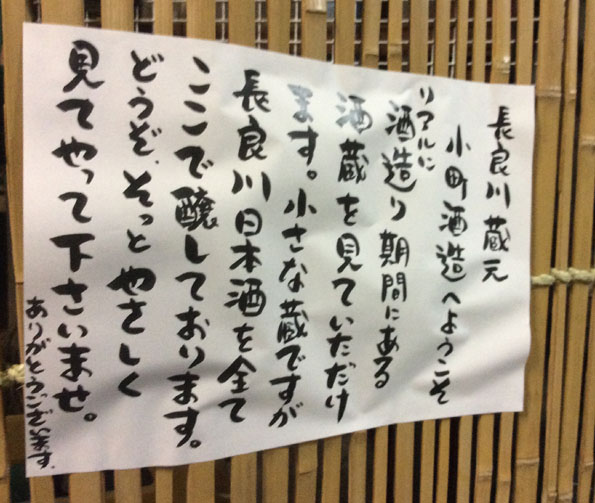 長良川蔵元
小町酒造へようこそ
リアルに
酒造り期間にある
酒蔵を見ていただけ
ます。小さな蔵ですが
長良川日本酒を全て
ここで醸しております。
どうぞ、そっとやさしく
見てやって下さいませ。
ありがとうございます。